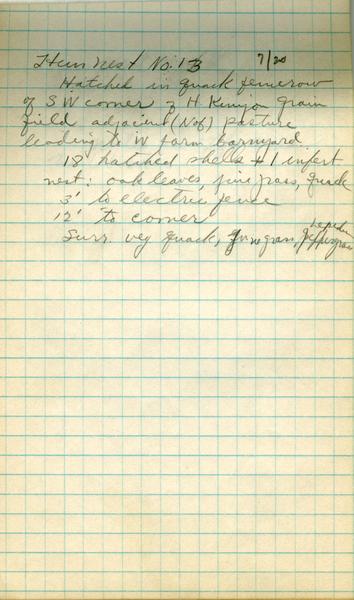 Hun nest No. 13 7/20
Hatched in quack fencerow
of SW corner of H Kenyon grain
field adjacent (N of) pasture
leading to W farm barnyard.
18 hatched shells + 1 infert
nest: oak leaves, june grass, quack
3' to electric fence
12' to corner
Surr. veg quack, June grass, peppergrass
Lepidium